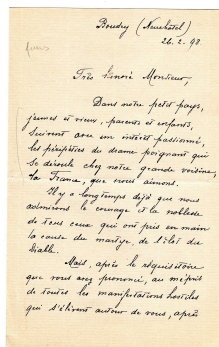 Boudry (Neuchâtel)
26.2.98.
Très honoré Monsieur,
Dans notre petit pays,
jeunes et vieux, parents et enfants,
suivent avec un intérêt passionné,
les péripéties du drame poignant qui
se déroule chez notre grande voisine,
la France, que nous aimons.
Il y a longtemps déjà que nous
admirons le courage et la noblesse
de tous ceux qui ont pris en main
la cause du martyr, de l'îlot du
Diable.
Mais, après le réquisitoire
que vous avez prononcé, au mépris
de toutes les manifestations hostiles
qui s'élèvent autour de vous, après